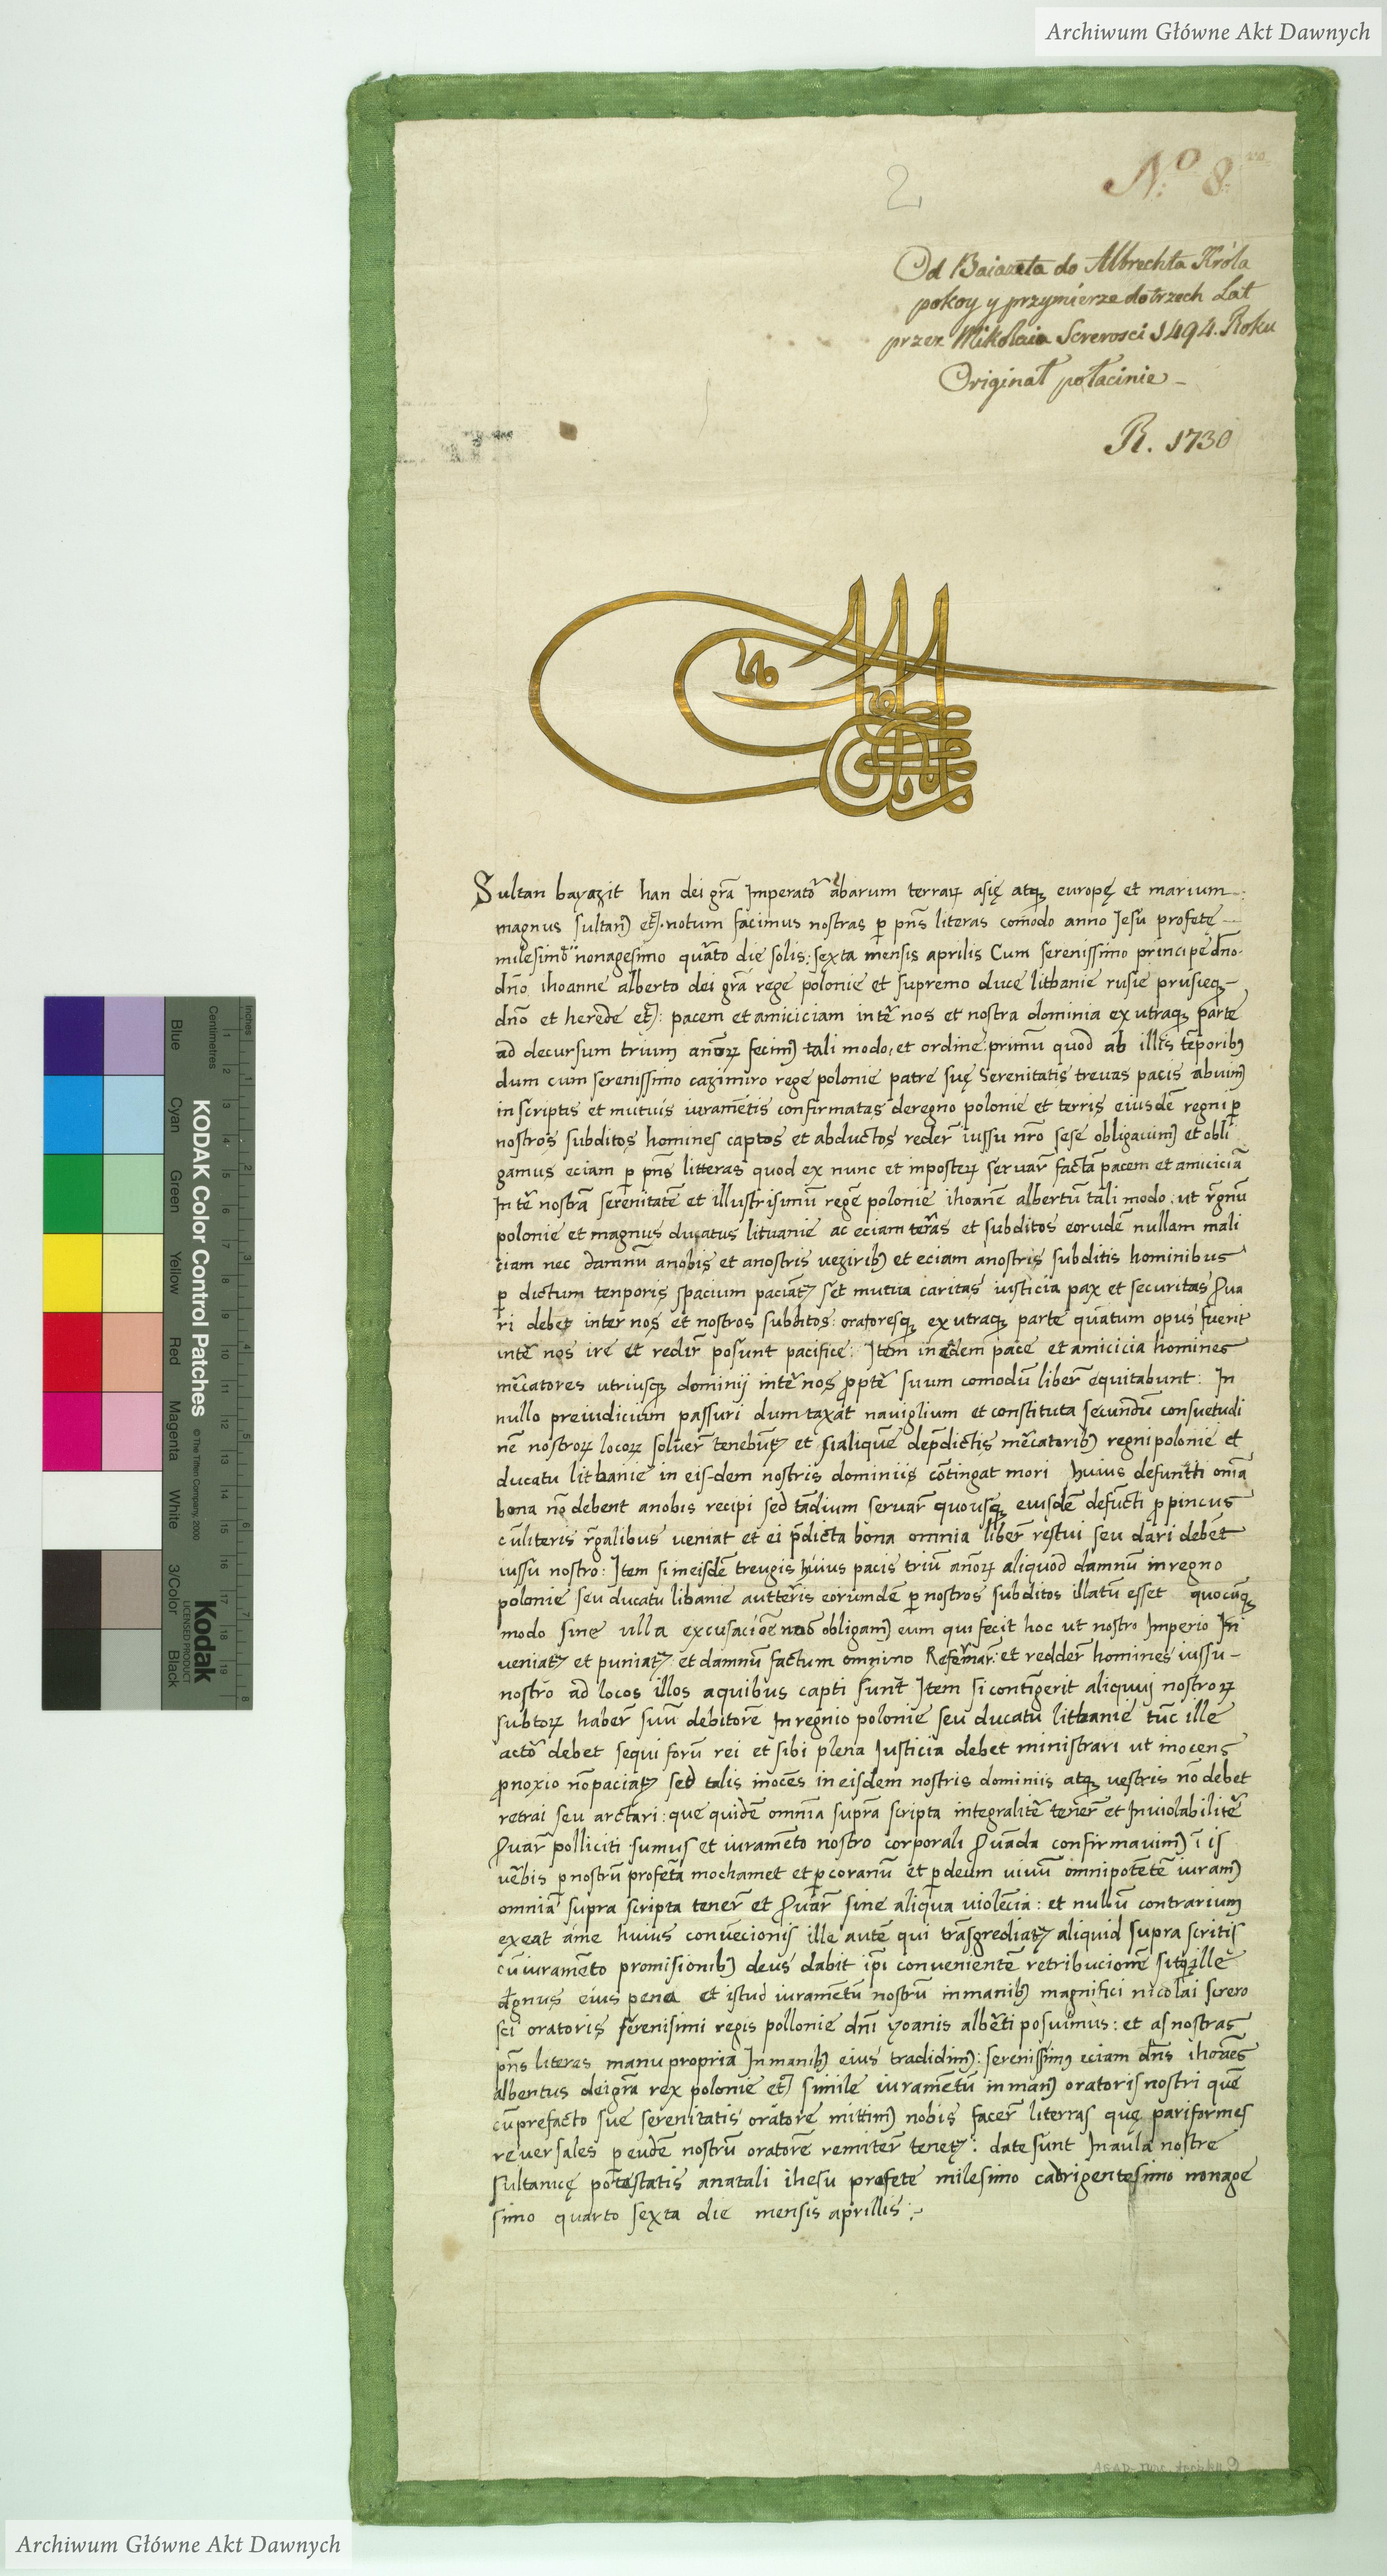 Archiwum Główne Akt Dawnych
No 8.
2
Od Baiazeta do Albrechta Króla
pokoy y przymierze do trzech Lat
przez Mikołaia Screrosci 1494. Roku
Originał po łacinie -
R. 1730
Sultan bayazit han dei grã Imperatõ ambarum terraꝝ asię atqꝫ europę et marium
magnus sultanꝰ etc̃. notum facimus nostras ꝑ pñs literas comodo anno Jesũ profetę
milesimo nonagesimo quãto die solis: sexta mensis aprilis Cum serenissimo principe dño
dño ihoanne alberto dei grã rege polonie et supremo duce litbanie rusie prusieqꝫ
dño et herede etc̃: pacem et amiciciam intẽ nos et nostra dominia ex utraqꝫ parte
ad decursum trium anõꝝ fecimꝰ tali modo, et ordine: primũ quod ab illis tẽporibꝰ
dum cum serenissimo cazimiro rege polonie patre suę Serenitatis trevas pacis abuimꝰ
in scriptis et mutuis iuramẽtis confirmatas de regno polonie et terris eiusdẽ regni ꝑ
nostros subditos homines captos et abductos redeř iussu nr̃o sese obligauimꝰ et obli
gamus eciam ꝑ pñs litteras quod ex nunc et inposteꝝ seruař factã pacem et amiciciã
Intẽ nostrã serenitatẽ et illustrisimũ regẽ polonie ihoanẽ albertũ tali modo. ut rĕgnũ
polonie et magnus ducatus lituanie ac eciam terãs et subditos eorudẽ nullam mali
ciam nec damnũ anobis et anostris ueziribꝰ et eciam anostris subditis hominibus
ꝑ dictum tenporis spacium paciatꝛ set mutua caritas iusticia pax et securitas ꝓua
ri debet inter nos et nostros subditos: oratoresqꝫ ex utraqꝫ parte quãtum opus fuerit
intẽ nos ire et redir̃ posũnt pacifice: Item in eãdem pace et amicicia homines
mẽcatores utriusqꝫ dominij intẽ nos ꝓptẽ suum comodũ liber̃ equitabunt: In
nullo preiudicium passuri dum taxat nauiglium et constituta secundũ consuetudi
nẽ nostroꝝ locoꝝ soluer̃ tenebũtꝛ et si aliquẽ depd̃ictis mẽcatoribꝰ regni polonie et
ducatu litbanie in eis-dem nostris dominiis cõtingat mori huius defuntti oniã
bona nõ debent anobis recipi sed tãdium seruar̃ quousqꝫ eiusdẽ defũcti ꝓpincus
cũliteris rĕgalibus ueniat et ei p̃dicta bona omnia liber̃ restui seu dari debẽt
iussu nostro: Item si in eisdẽ treugis huius pacis triũ anõꝝ aliquod damnũ in regno
polonie seu ducatu libanie aut teris eorumdẽ ꝑ nostros subditos illatũ esset quocũqꝫ
modo sine ulla excusaciõe nos obligamꝰ eum qui fecit hoc ut nostro Imperio In
ueniatꝛ et puniatꝛ et damnũ factum omnino Refermar̃: et redder̃ homines iussu
nostro ad locos illos aquibus capti sunt Item si contigerit aliquuj nostroꝝ
subtoꝝ haber̃ suũ debitorẽ In regnio polonie seu ducatu litbanie tũc ille
actõ debet sequi forũ rei et sibi plena Iusticia debet ministrari ut inocens
ꝓ noxio nõ paciatꝛ sed talis inocẽs in eisdem nostris dominiis atqꝫ uestris nõ debet
retrai seu arctari: que quidẽ omnia supra scripta integralitẽ tener̃ et Inuiolabilitẽ
ꝓuar̃ polliciti sumus et iuramẽto nostro corporali ꝓuãda confirmauimꝰ ĩ is
uẽbis ꝑ nostrũ profetã mochamet et ꝑ coranũ et ꝑ deum uiuũ omnipotẽtẽ iuramꝰ
omnia supra scripta tener̃ et ꝓuar̃ sine aliqua violẽcia: et nullũ contrarium
exeat ame huius conuẽcionis ille autẽ qui trãsgrediatꝛ aliquid supra scritis
cũ iuramẽto promisionibꝰ deus dabit ip̃i conuenientẽ retribucionẽ sitqꝫ ille
dignus eius pena et istud iuramẽtũ nostrũ in manibꝰ magnifici nicolai screro
sci oratoris serenisimi regis pollonie dñi yoanis albẽti posuimus: et as nostras
pñs literas manu propria In manibꝰ eius tradidimꝰ: serenissimꝰ eciam dñs ihoãẽs
albentus dei grã rex polonie etc̃ simile iuramẽtũ in manꝰ oratoris nostri quẽ
cũ prefacto sue serenitatis oratore mittimꝰ nobis facer̃ literras quę pariformes
reuersales ꝑ eudẽ nostrũ oratorẽ remiter̃ tenetꝛ: date sũnt In aula nostre
sultanicę potestatis anatali ihesu profete milesimo cadrigentesimo nonage
simo quarto sexta die mensis aprillis:
Inches
Centimetres
Blue
Cyan
Green
Yellow
Red
Magenta
White
3/Color
Black
KODAK Color Control Patches
© The Tiffen Company, 2000
Kodak
LICENSED PRODUCT
Archiwum Główne Akt Dawnych